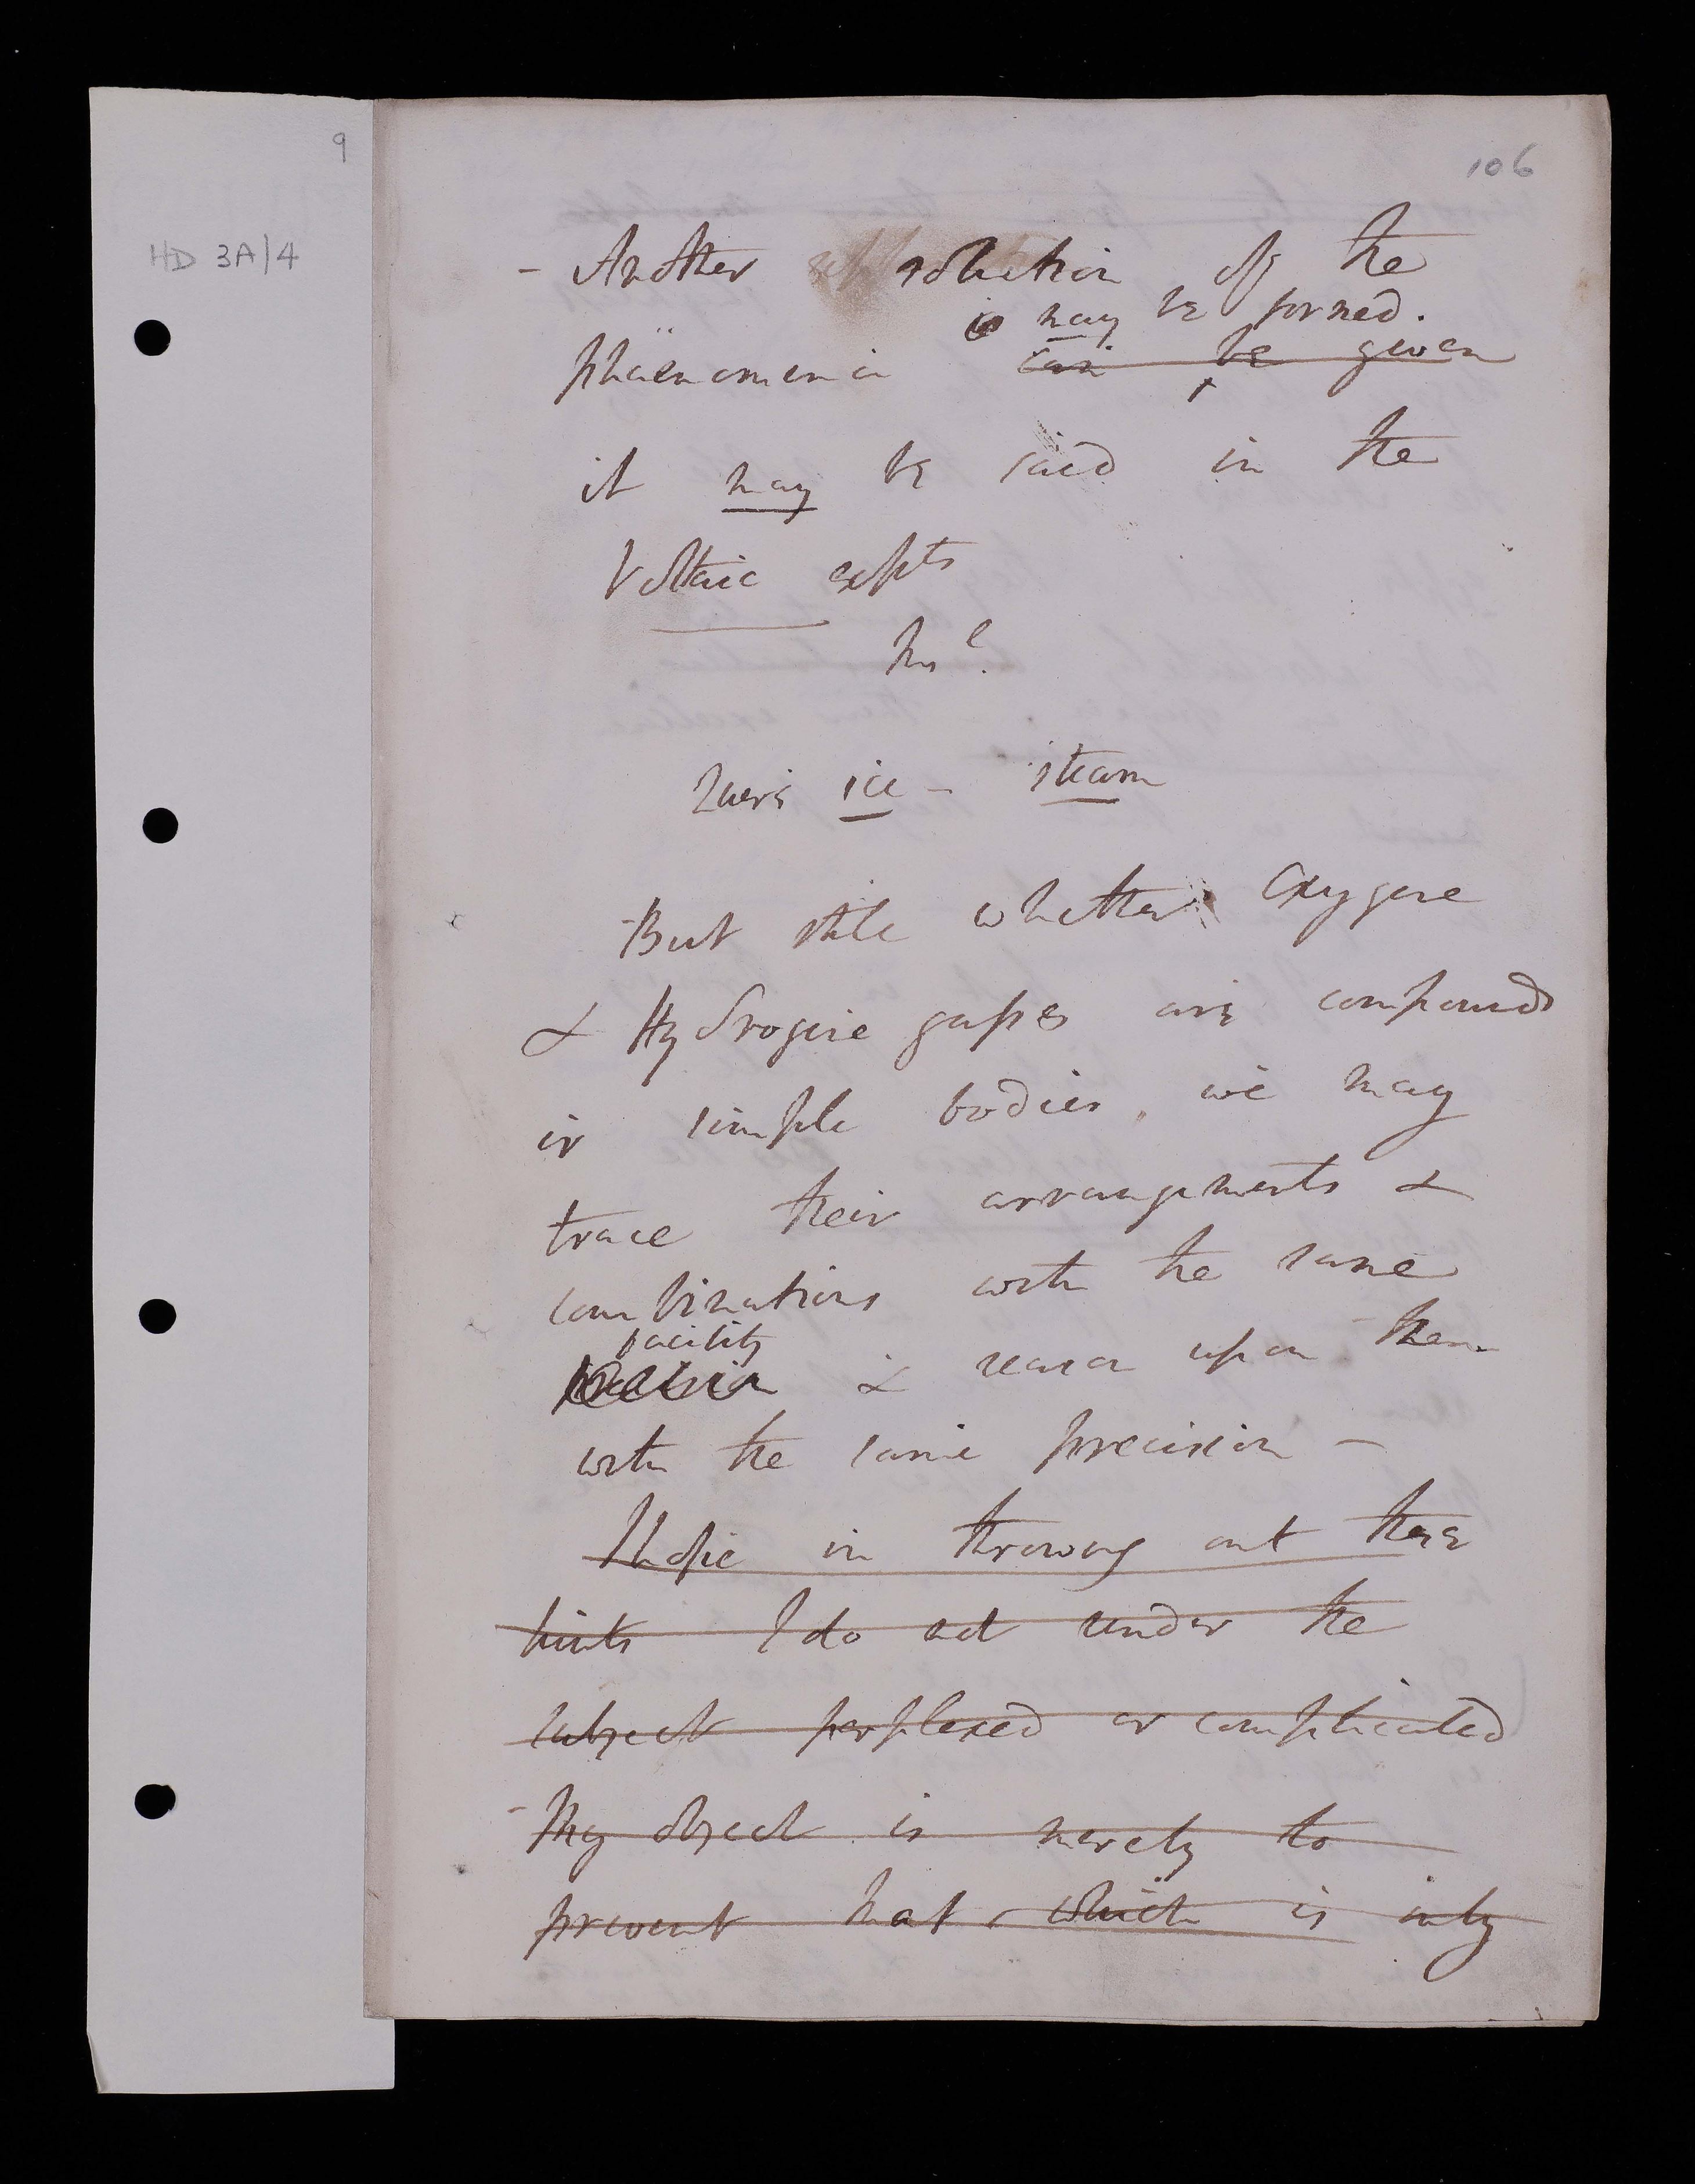 9
106
HD 3A/4
- Another solution of the
may be formed.
phaenomena can be given
it may be said in the
Voltaic expts
ice - steam
- But still whether Oxygene
& Hydrogene gasses are compounds
or simple bodies, we may
trace their arrangements &
combinations with the same
facility
& reason upon them
with the same precision -
I hope in throwing out these
hints I do not render the
subject perplexed or complicated
- My object is merely to
prevent that which is only